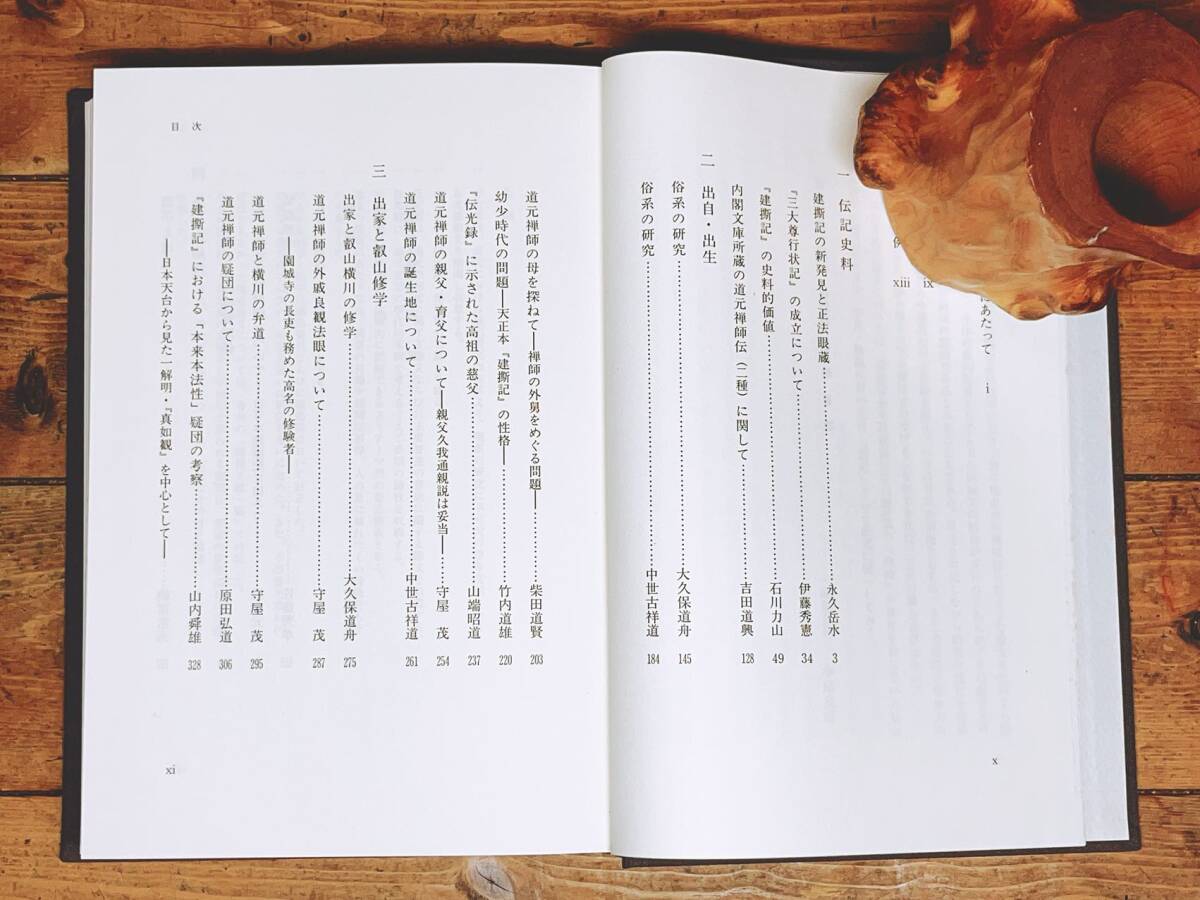 にあたって i
ix
例 xiii
一 伝記史料
建撕記の新発見と正法眼蔵……永久岳水 3
『三大尊行状記』の成立について……伊藤秀憲 34
『建撕記』の史料的価値……石川力山 49
内閣文庫所蔵の道元禅師伝（二種）に関して……吉田道興 128
二 出自・出生
俗系の研究……大久保道舟 145
俗系の研究……中世古祥道 184
x
目次
道元禅師の母を探ねて――禅師の外舅をめぐる問題――……柴田道賢 203
幼少時代の問題――天正本『建撕記』の性格――……竹内道雄 220
『伝光録』に示された高祖の慈父……山端昭道 237
道元禅師の親父・育父について――親父久我通親説は妥当――……守屋 茂 254
道元禅師の誕生地について……中世古祥道 261
三 出家と叡山修学
出家と叡山横川の修学……大久保道舟 275
道元禅師の外戚良観法眼について……守屋 茂 287
――園城寺の長吏も務めた高名の修験者――
道元禅師と横川の弁道……守屋 茂 295
道元禅師の疑団について……原田弘道 306
『建撕記』における「本来本法性」疑団の考察……山内舜雄 328
――日本天台から見た一解明・『真如観』を中心として――
xi